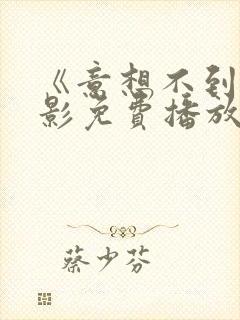 《意想不到
影免费播放
蔡少芬